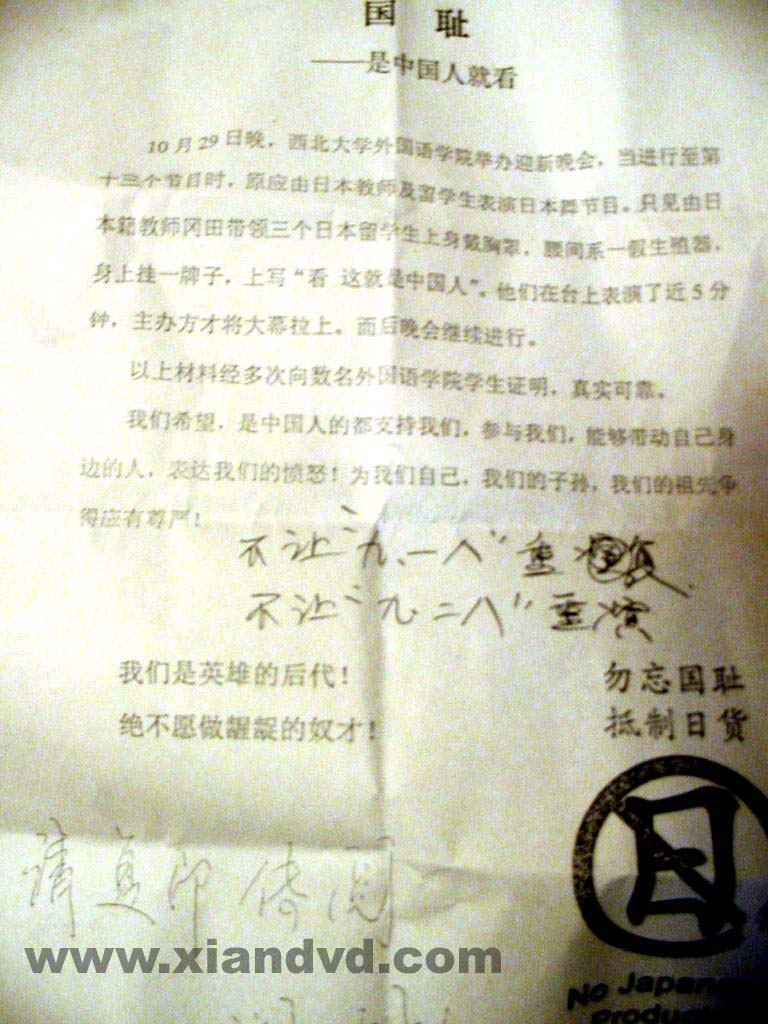 国 耻
——是中国人就看
10月29日晚，西北大学外国语学院举办迎新晚会，当进行至第
十三个节目时，原应由日本教师及留学生表演日本舞节目。只见由日
本籍教师冈田带领三个日本留学生上身戴胸罩，腰间系一假生殖器，
身上挂一牌子，上写“看 这就是中国人”。他们在台上表演了近5分
钟，主办方才将大幕拉上。而后晚会继续进行。
以上材料经多次向数名外国语学院学生证明，真实可靠。
我们希望，是中国人的都支持我们，参与我们，能够带动自己身
边的人，表达我们的愤怒！为我们自己，我们的子孙，我们的祖先争
得应有尊严！
不让“九.一八”重
不让“九.二八”重演
我们是英雄的后代！
勿忘国耻
绝不愿做龌龊的奴才！
抵制日货
日
请复印传阅
www.xiandvd.com
No Japan
Produ